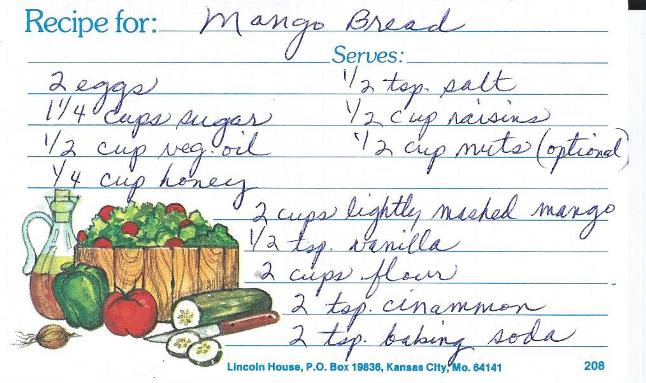 Recipe for: Mango Bread
Serves:
2 eggs
1 1/4 cups sugar
1/2 cup veg. oil
1/4 cup honey
1/2 tsp. salt
1/2 cup raisins
1/2 cup nuts (optional)
2 cups lightly mashed mango
1/2 tsp. vanilla
2 cups flour
2 tsp. cinammon
2 tsp. baking soda
Lincoln House, P.O. Box 19836, Kansas City, Mo. 64141 208